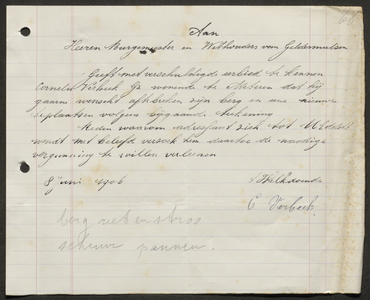 Aan
Heeren Burgemeester en Wethouders van Geldermalsen
Geeft met verschuldigde eerbied te kennen
Cornelis Verbeek Jz wonende te Meteren dat hij
gaarne wenscht afbreken zijn berg en een nieuwe
te plaatsen volgens bijgaande teekening
Reden waarom adressant zich tot UEdelA
wendt met beleefd verzoek hem daartoe de noodige
vergunning te willen verleenen
8 Juni 1906
C Verbeek
berg riet en stroo
schuur pannen.